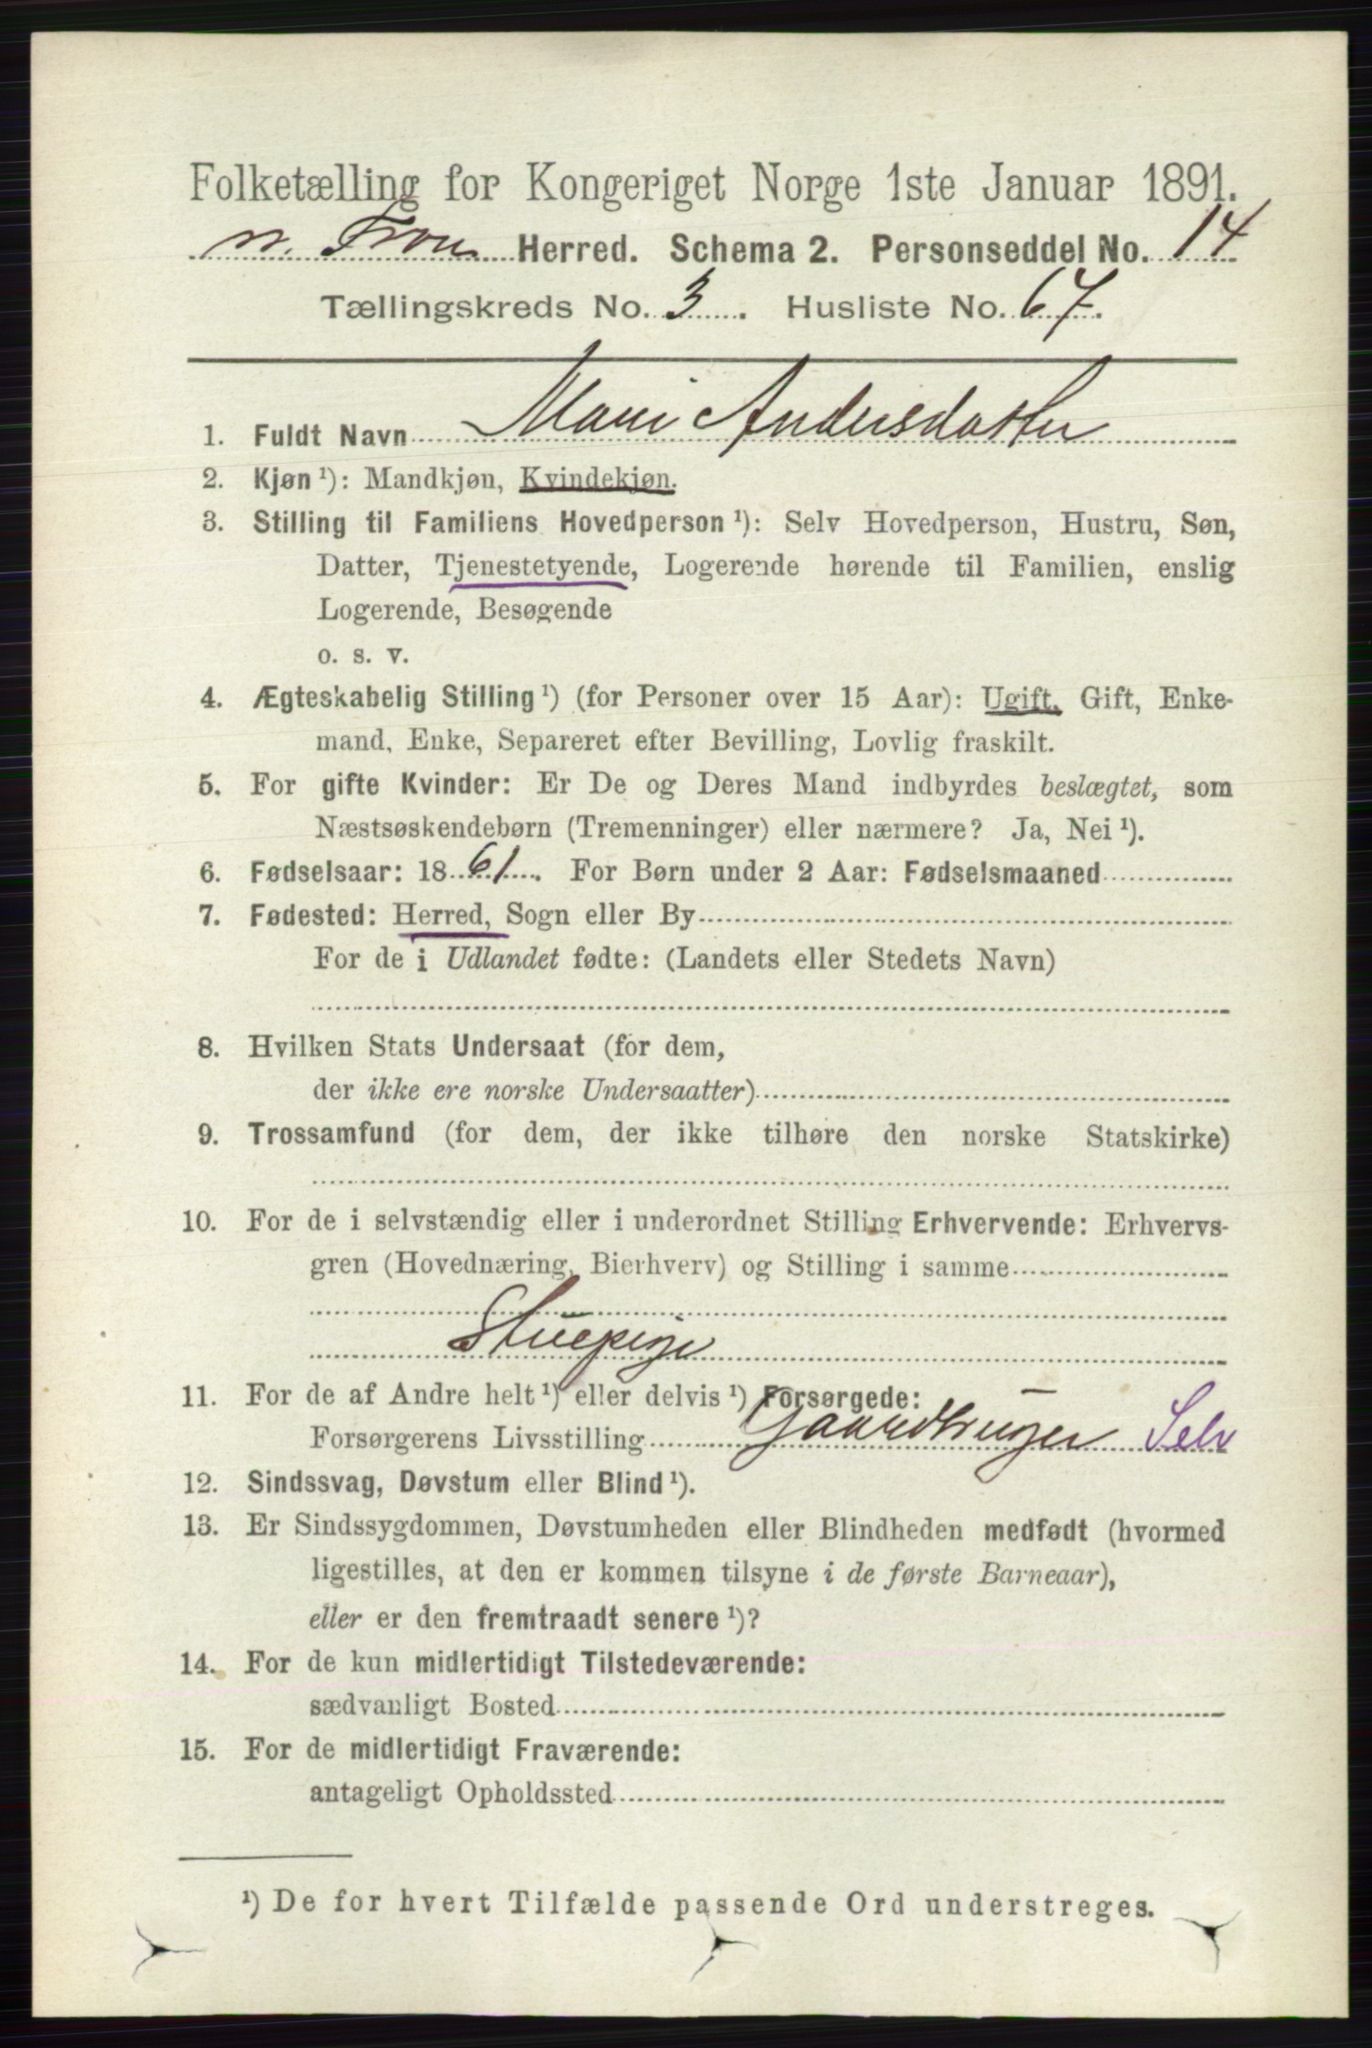 Folketælling for Kongeriget Norge 1ste Januar 1891.
n. Fron Herred. Schema 2. Personseddel No. 14
Tællingskreds No. 3. Husliste No. 67.
1. Fuldt Navn Mari Andersdatter
2. Kjøn ¹): Mandkjøn, Kvindekjøn.
3. Stilling til Familiens Hovedperson ¹): Selv Hovedperson, Hustru, Søn,
Datter, Tjenestetyende, Logerende hørende til Familien, enslig
Logerende, Besøgende
o. s. v.
4. Ægteskabelig Stilling ¹) (for Personer over 15 Aar): Ugift, Gift, Enke-
mand, Enke, Separeret efter Bevilling, Lovlig fraskilt.
5. For gifte Kvinder: Er De og Deres Mand indbyrdes beslægtet, som
Næstsøskendebørn (Tremenninger) eller nærmere? Ja, Nei ¹).
6. Fødselsaar: 1861. For Børn under 2 Aar: Fødselsmaaned
7. Fødested: Herred, Sogn eller By
For de i Udlandet fødte: (Landets eller Stedets Navn)
8. Hvilken Stats Undersaat (for dem,
der ikke ere norske Undersaatter)
9. Trossamfund (for dem, der ikke tilhøre den norske Statskirke)
10. For de i selvstændig eller i underordnet Stilling Erhvervende: Erhvervs-
gren (Hovednæring, Bierhverv) og Stilling i samme
Stuepige
11. For de af Andre helt ¹) eller delvis ¹) Forsørgede:
Forsørgerens Livsstilling Gaardbruger Selv
12. Sindssvag, Døvstum eller Blind ¹).
13. Er Sindssygdommen, Døvstumheden eller Blindheden medfødt (hvormed
ligestilles, at den er kommen tilsyne i de første Barneaar),
eller er den fremtraadt senere ¹)?
14. For de kun midlertidigt Tilstedeværende:
sædvanligt Bosted
15. For de midlertidigt Fraværende:
antageligt Opholdssted
¹) De for hvert Tilfælde passende Ord understreges.